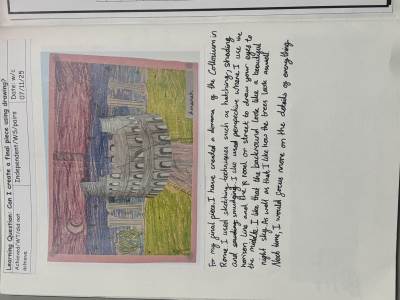 Learning Question: Can I create a final piece using drawing?
Achieved/WT/did not
achieve
Independent/WS/pairs
Date: w/c
07/11/25
For my final piece I have created a diorama of the Colloseum in
Rome. I used sketching techniques such as hatching, shading
and smudging. I also used perspective where I use the
horizon line and the road or street to draw your eyes to
the middle. I like that the background look like a beautiful
night sky. As well as that I like how the trees look aswell.
Next time, I would focus more on the details of everything.